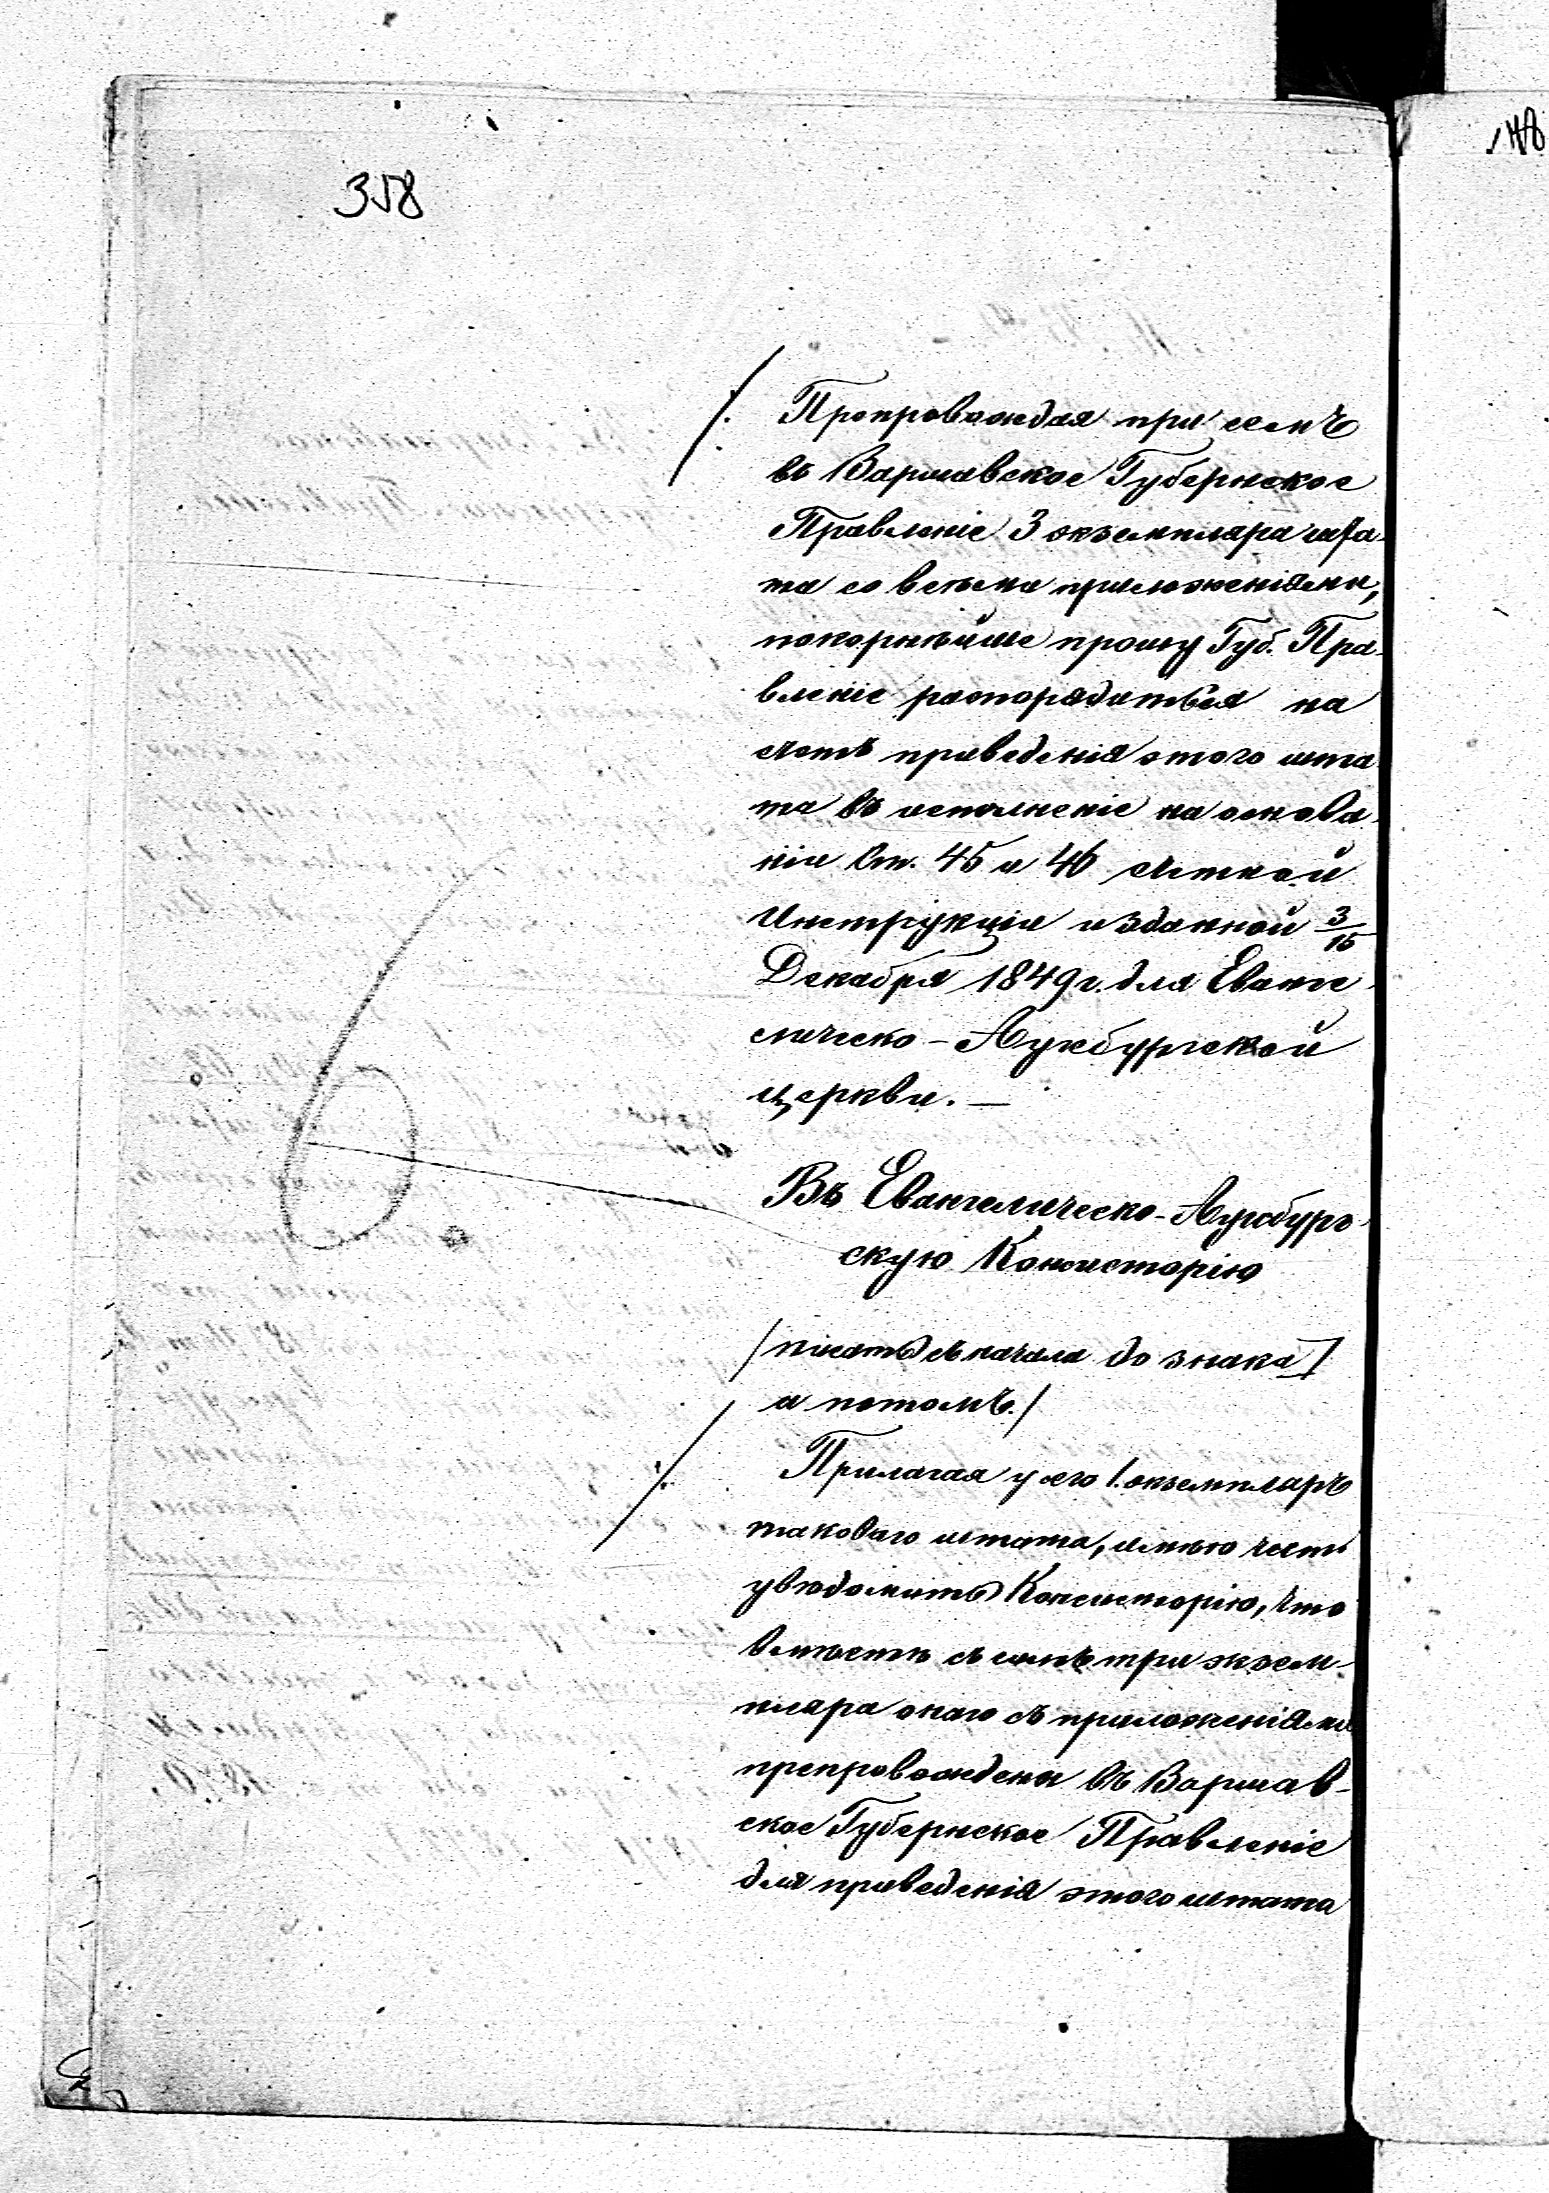 358
Препровождая при семъ
въ Варшавское Губернское
Правленіе 3 экземпляра шта-
та со всѣми приложеніями,
покорнѣйше прошу Губ. Пра-
вленіе распорядиться на
счетъ приведенія этого шта-
та въ исполненіе на основа-
ніи Ст. 45 и 46 счетной
Инструкціи изданной 3/15
Декабря 1849 г. для Еванге-
лическо-Аугсбургской
церкви. —
Въ Евангелическо-Аугсбург-
скую Консисторію
/писать съ начала до знака ]
а потомъ./
Прилагая у сего 1. экземпляръ
таковаго штата, имѣю честь
увѣдомить Консисторію, что
вмѣстѣ съ симъ три экзем-
пляра онаго съ приложеніями
препровождены въ Варшав-
ское Губернское Правленіе
для приведенія этого штата